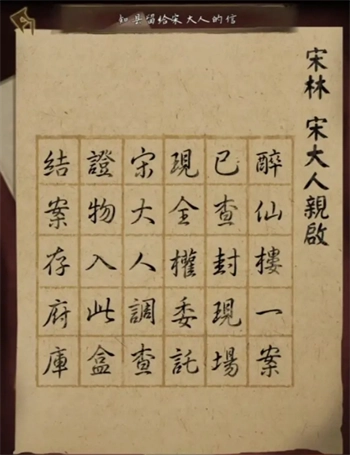 知县留给宋大人的信
宋林 宋大人親啟
醉仙樓一案
已查封現場
現全權委託
宋大人調查
證物入此盒
結案存府庫